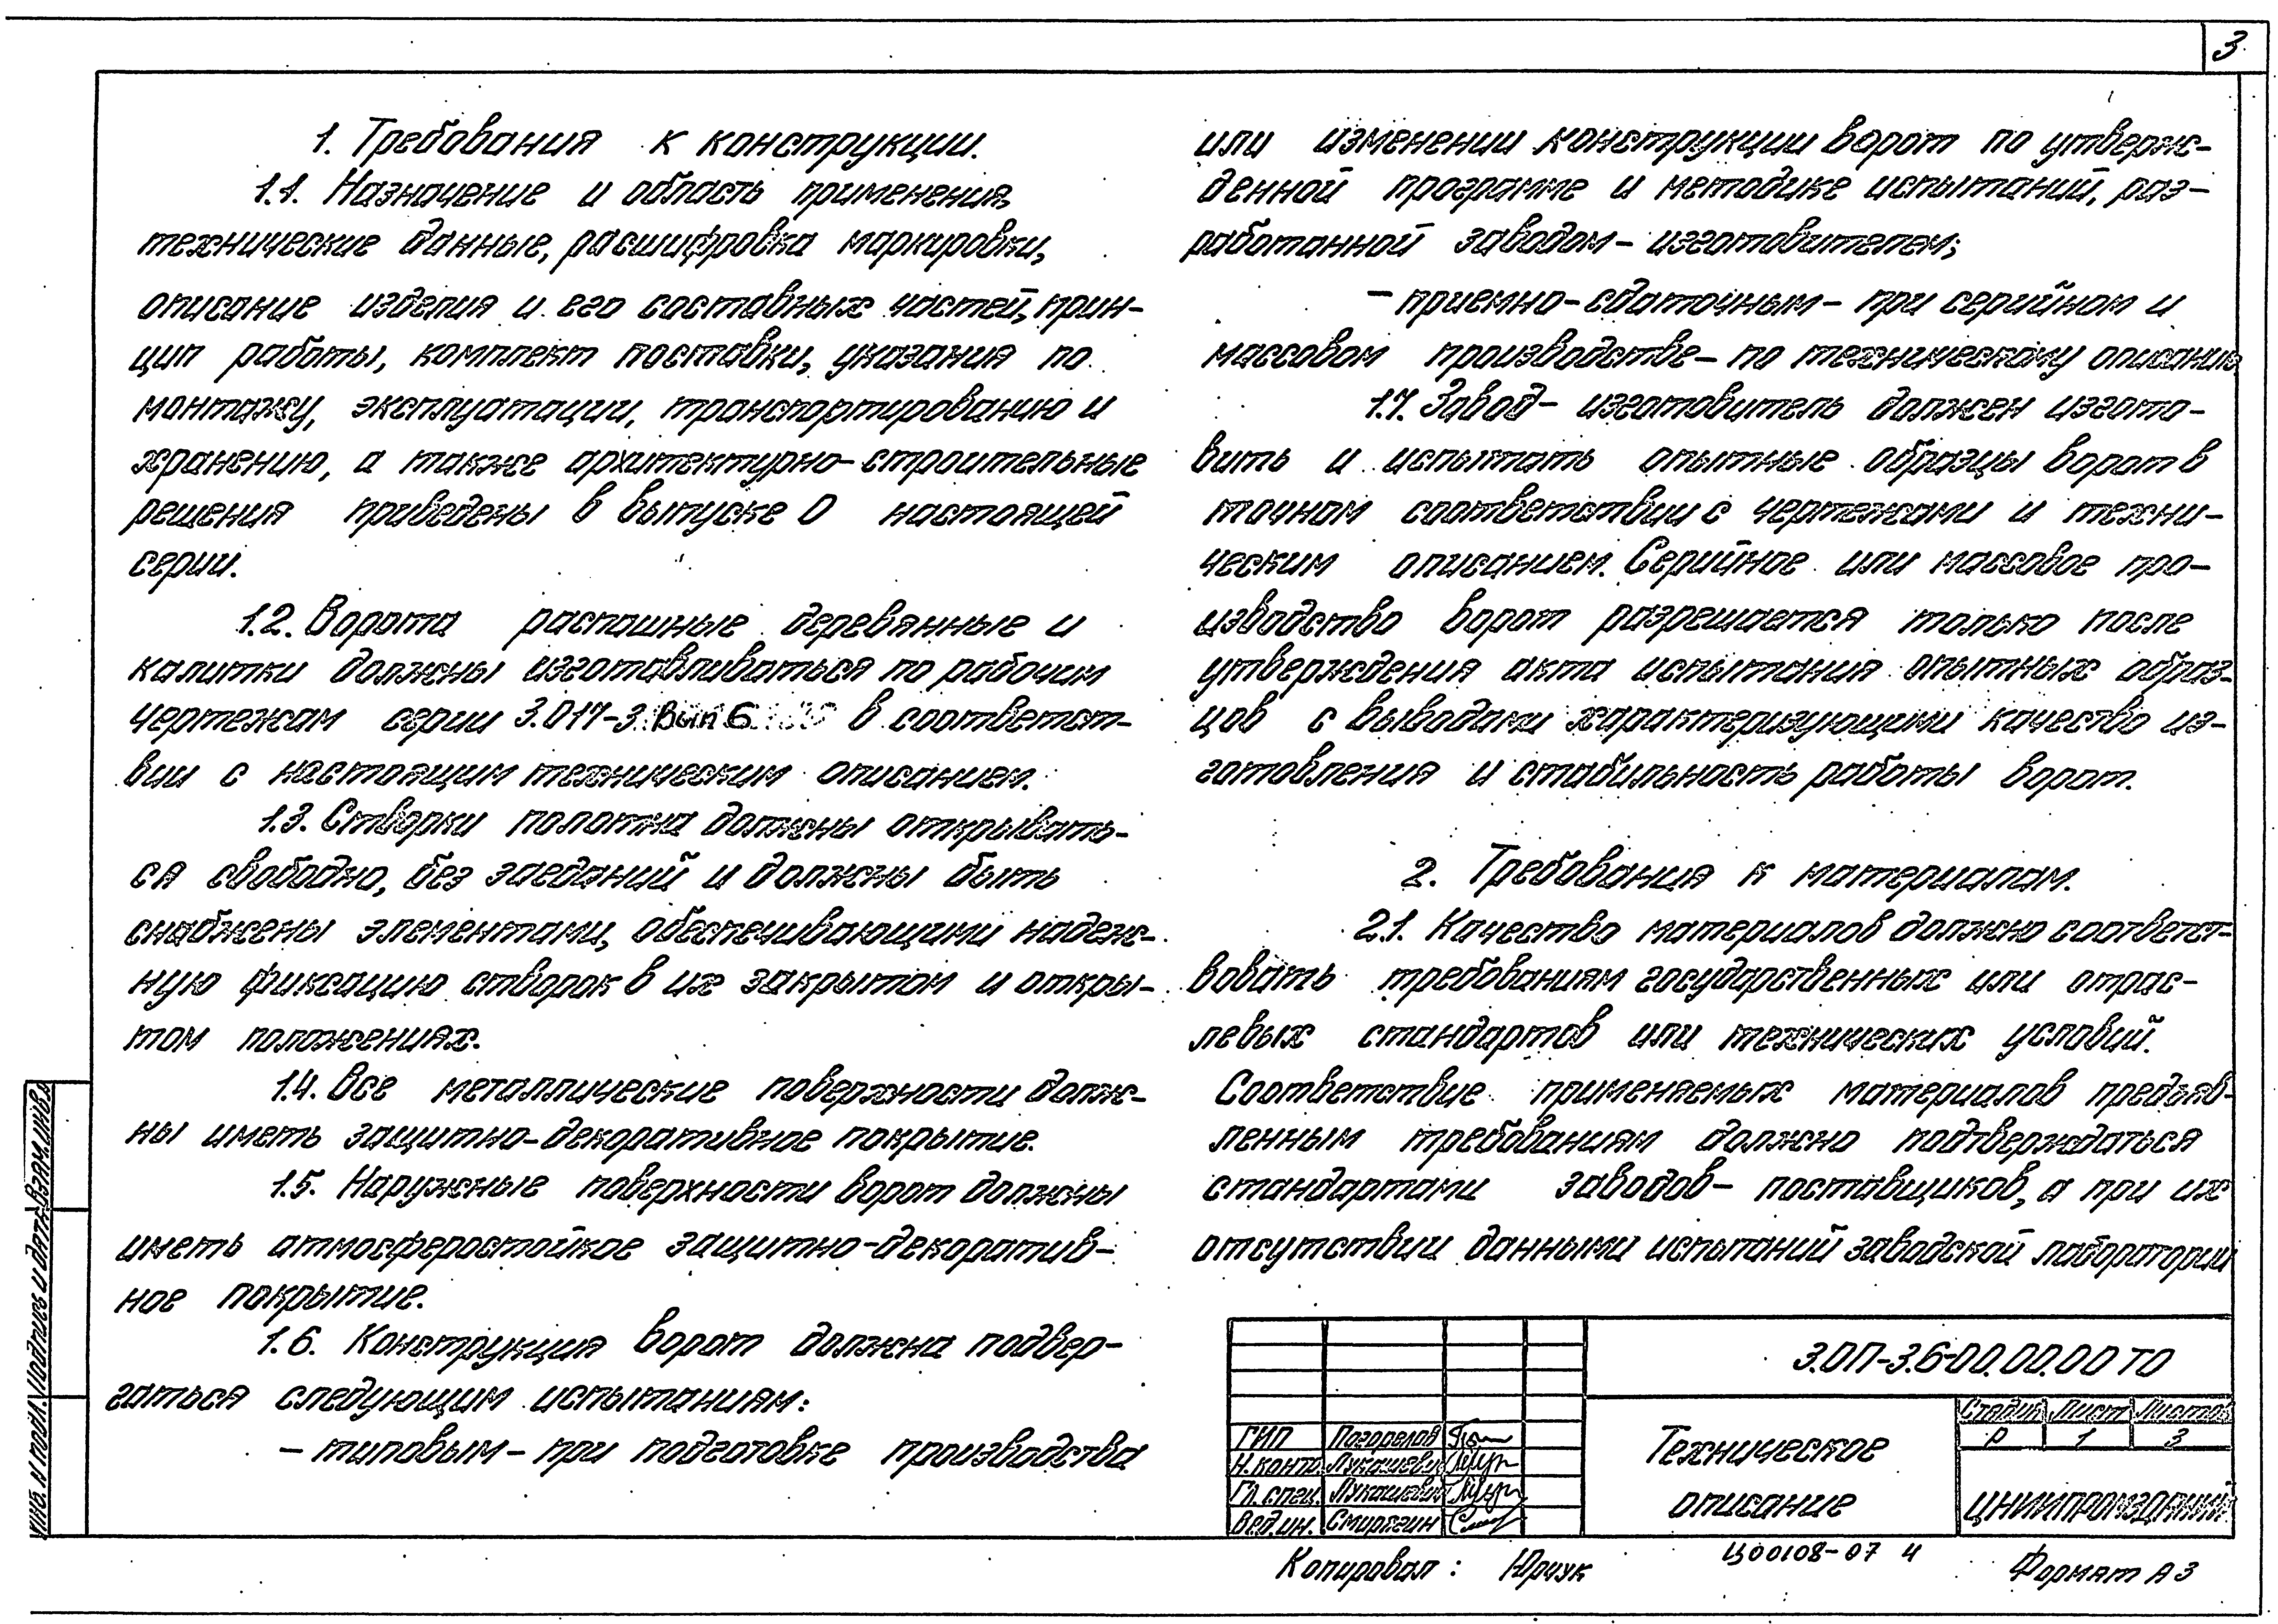 3
1. Требования к конструкции.
1.1. Назначение и область применения,
технические данные, расшифровка маркировки,
описание изделия и его составных частей, прин-
цип работы, комплект поставки, указания по
монтажу, эксплуатации, транспортированию и
хранению, а также архитектурно-строительные
решения приведены в выпуске 0 настоящей
серии.
1.2. Ворота распашные деревянные и
калитки должны изготавливаться по рабочим
чертежам серии 3.017-3. Вып 6 в соответст-
вии с настоящим техническим описанием.
1.3. Створки полотна должны открывать-
ся свободно, без заеданий и должны быть
снабжены элементами, обеспечивающими надеж-
ную фиксацию створок в их закрытом и откры-
том положениях.
1.4. Все металлические поверхности долж-
ны иметь защитно-декоративное покрытие.
1.5. Наружные поверхности ворот должны
иметь атмосферостойкое защитно-декоратив-
ное покрытие.
1.6. Конструкция ворот должна подвер-
гаться следующим испытаниям:
- типовым - при подготовке производства
или изменении конструкции ворот по утверж-
денной программе и методике испытаний, раз-
работанной заводом-изготовителем;
- приемно-сдаточным - при серийном и
массовом производстве - по техническому описанию
1.7. Завод-изготовитель должен изгото-
вить и испытать опытные образцы ворот в
точном соответствии с чертежами и техни-
ческим описанием. Серийное или массовое про-
изводство ворот разрешается только после
утверждения акта испытания опытных образ-
цов с выводами характеризующими качество из-
готовления и стабильность работы ворот.
2. Требования к материалам.
2.1. Качество материалов должно соответст-
вовать требованиям государственных или отрас-
левых стандартов или технических условий.
Соответствие применяемых материалов предъяв-
ленным требованиям должно подтверждаться
стандартами заводов-поставщиков, а при их
отсутствии данными испытаний заводской лаборатории
3.017-3.6-00.00.00 ТО
ГИП Погорелов
Н.контр. Лукашевич
Гл. спец. Лукашевич
Вед.ин. Смирягин
Техническое
описание
Стадия Лист Листов
Р 1 3
ЦНИИПРОМЗДАНИЙ
Копировал: Юрчук
Ц00108-07 4
Формат А3
Инв. N подл. Подпись и дата Взам. инв.N